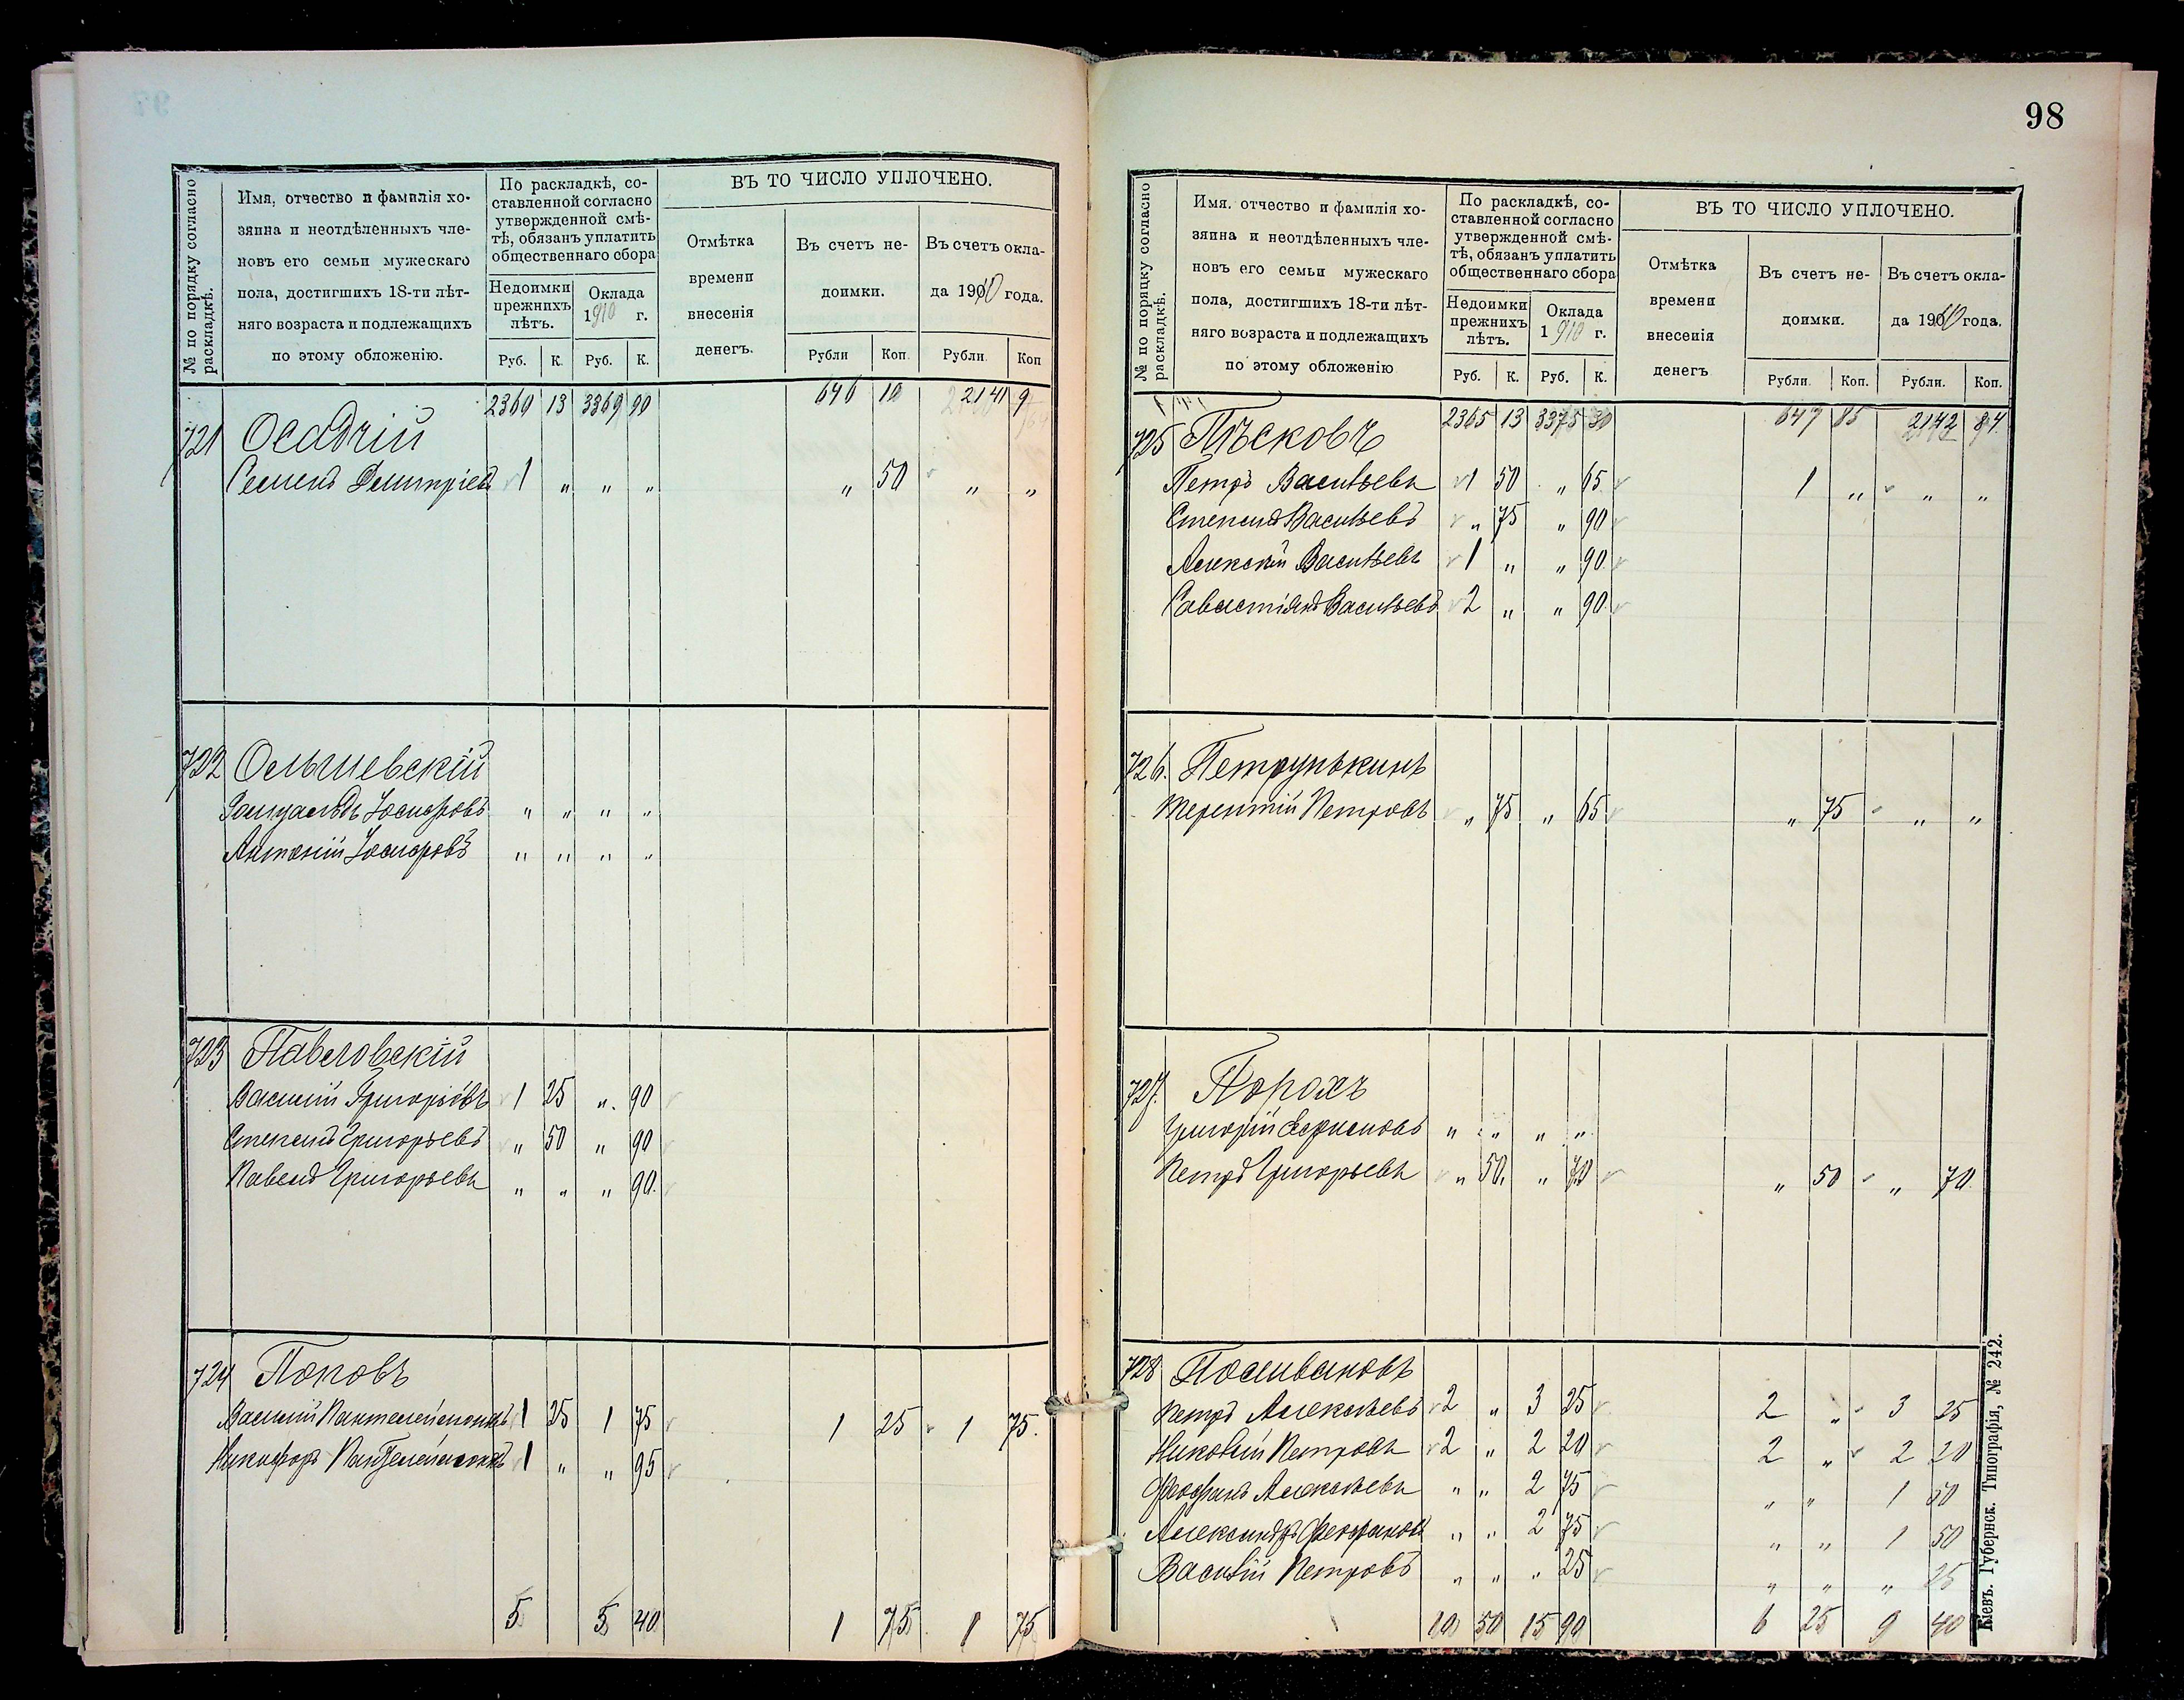 98
№ по порядку согласно раскладкѣ.
Имя, отчество и фамилія хо-
зяина и неотдѣленныхъ чле-
новъ его семьи мужескаго
пола, достигшихъ 18-ти лѣт-
няго возраста и подлежащихъ
по этому обложенію.
По раскладкѣ, со-
ставленной согласно
утвержденной смѣ-
тѣ, обязанъ уплатить
общественнаго сбора
Недоимки прежнихъ лѣтъ.
Оклада 1910 г.
Руб. К. Руб. К.
ВЪ ТО ЧИСЛО УПЛОЧЕНО.
Отмѣтка времени внесенія денегъ.
Въ счетъ не-
доимки.
Въ счетъ окла-
да 1910 года.
Рубли Коп. Рубли. Коп
2360 13 3369 90 646 10 2141 9
721 Осадчій
Семенъ Димитріевъ 1 " " " " 50 " "
722 Ольшевскій
Ромуальдъ Іосифовъ " " " "
Антоній Іосифовъ " " " "
723 Павловскій
Василій Григорьевъ 1 25 " 90
Степанъ Григорьевъ " 50 " 90
Павелъ Григорьевъ " " " 90
724 Поповъ
Василій Пантелеймоновъ 1 25 1 75 1 25 1 75
Никифоръ Пантелеймоновъ 1 " " 95
5 5 40 1 75 1 75
№ по порядку согласно раскладкѣ.
Имя, отчество и фамилія хо-
зяина и неотдѣленныхъ чле-
новъ его семьи мужескаго
пола, достигшихъ 18-ти лѣт-
няго возраста и подлежащихъ
по этому обложенію
По раскладкѣ, со-
ставленной согласно
утвержденной смѣ-
тѣ, обязанъ уплатить
общественнаго сбора
Недоимки прежнихъ лѣтъ.
Оклада 1910 г.
Руб. К. Руб. К.
ВЪ ТО ЧИСЛО УПЛОЧЕНО.
Отмѣтка времени внесенія денегъ
Въ счетъ не-
доимки.
Въ счетъ окла-
да 1910 года.
Рубли. Коп. Рубли. Коп.
2365 13 3375 30 647 85 2142 84
725 Пѣсковъ
Петръ Васильевъ 1 50 " 65 1 " " "
Степанъ Васильевъ " 75 " 90
Алексѣй Васильевъ 1 " " 90
Савастіянъ Васильевъ 2 " " 90
726. Петрунькинъ
Терентій Петровъ " 75 " 65 " 75 " "
727. Порохъ
Григорій " " " "
Петръ Григорьевъ " 50 " 70 " 50 " 70
728 Посливановъ
Петръ Алексѣевъ 2 " 3 25 2 " 3 25
Николай Петровъ 2 " 2 20 2 " 2 20
Феофанъ Алексѣевъ " " 2 75 " " 1 50
Александръ Феофановъ " " 2 75 " " 1 50
Василій Петровъ " " " 25 " " " 25
10 50 15 90 6 25 9 40
Кіевъ. Губернск. Типографія, № 242.